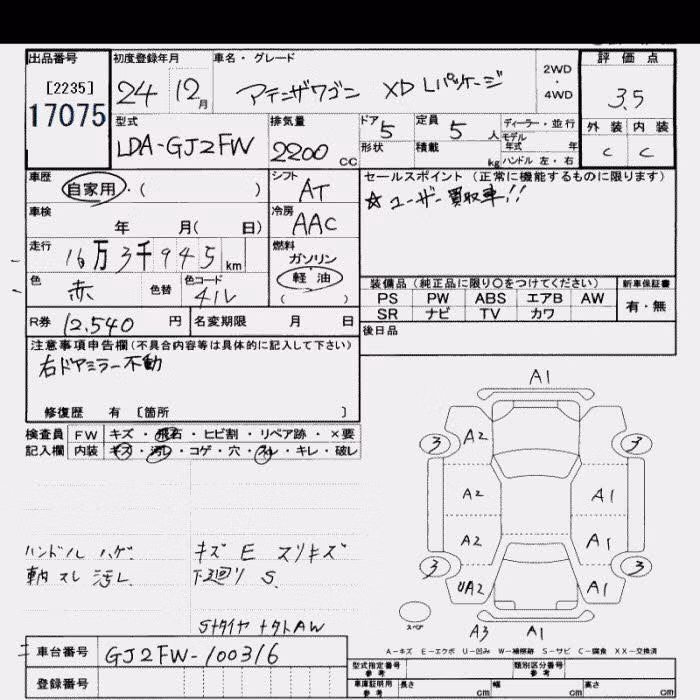 出品番号
[2235]
17075
初度登録年月
24 12月
車名・グレード
アテンザワゴン XD Lパッケージ
2WD
・
4WD
評価点
3.5
外装 内装
C C
型式
LDA-GJ2FW
排気量
2200 cc
ドア 5
定員 5 人
ディーラー・並行
モデル
年式 年
形状
積載 kg
ハンドル 左・右
車歴
自家用・( )
シフト
AT
セールスポイント(正常に機能するものに限ります)
☆ユーザー買取車!!
車検
年 月( 日)
冷房
AAC
走行
16万3千945km
燃料
ガソリン
軽油
( )
色
赤
色替
色コード
41V
装備品(純正品に限り○をつけてください)
新車保証書
PS PW ABS エアB AW
SR ナビ TV カワ
有・無
R券 12,540円
名変期限 月 日
後日品
注意事項申告欄(不具合内容等は具体的に記入して下さい)
右ドアミラー不動
修復歴 有 [箇所 ]
検査員 FW キズ・飛石・ヒビ割・リペア跡・×要
記入欄 内装 キズ・汚レ・コゲ・穴・スレ・キレ・破レ
ハンドル ハゲ
キズ E スリキズ
下廻り S
スレ 汚レ
Sタイヤ ナットAW
A1
3 A2 3
A2 A1
A2 A1
3 UA2 A1 3
スペア
A3 A1
A-キズ E-エクボ U-凹み W-補修跡 S-サビ C-腐食 XX-交換済
車台番号
GJ2FW-100316
登録番号
型式指定番号
参考
類別区分番号
参考
車庫証明用
参考
長さ cm 幅 cm 高さ cm